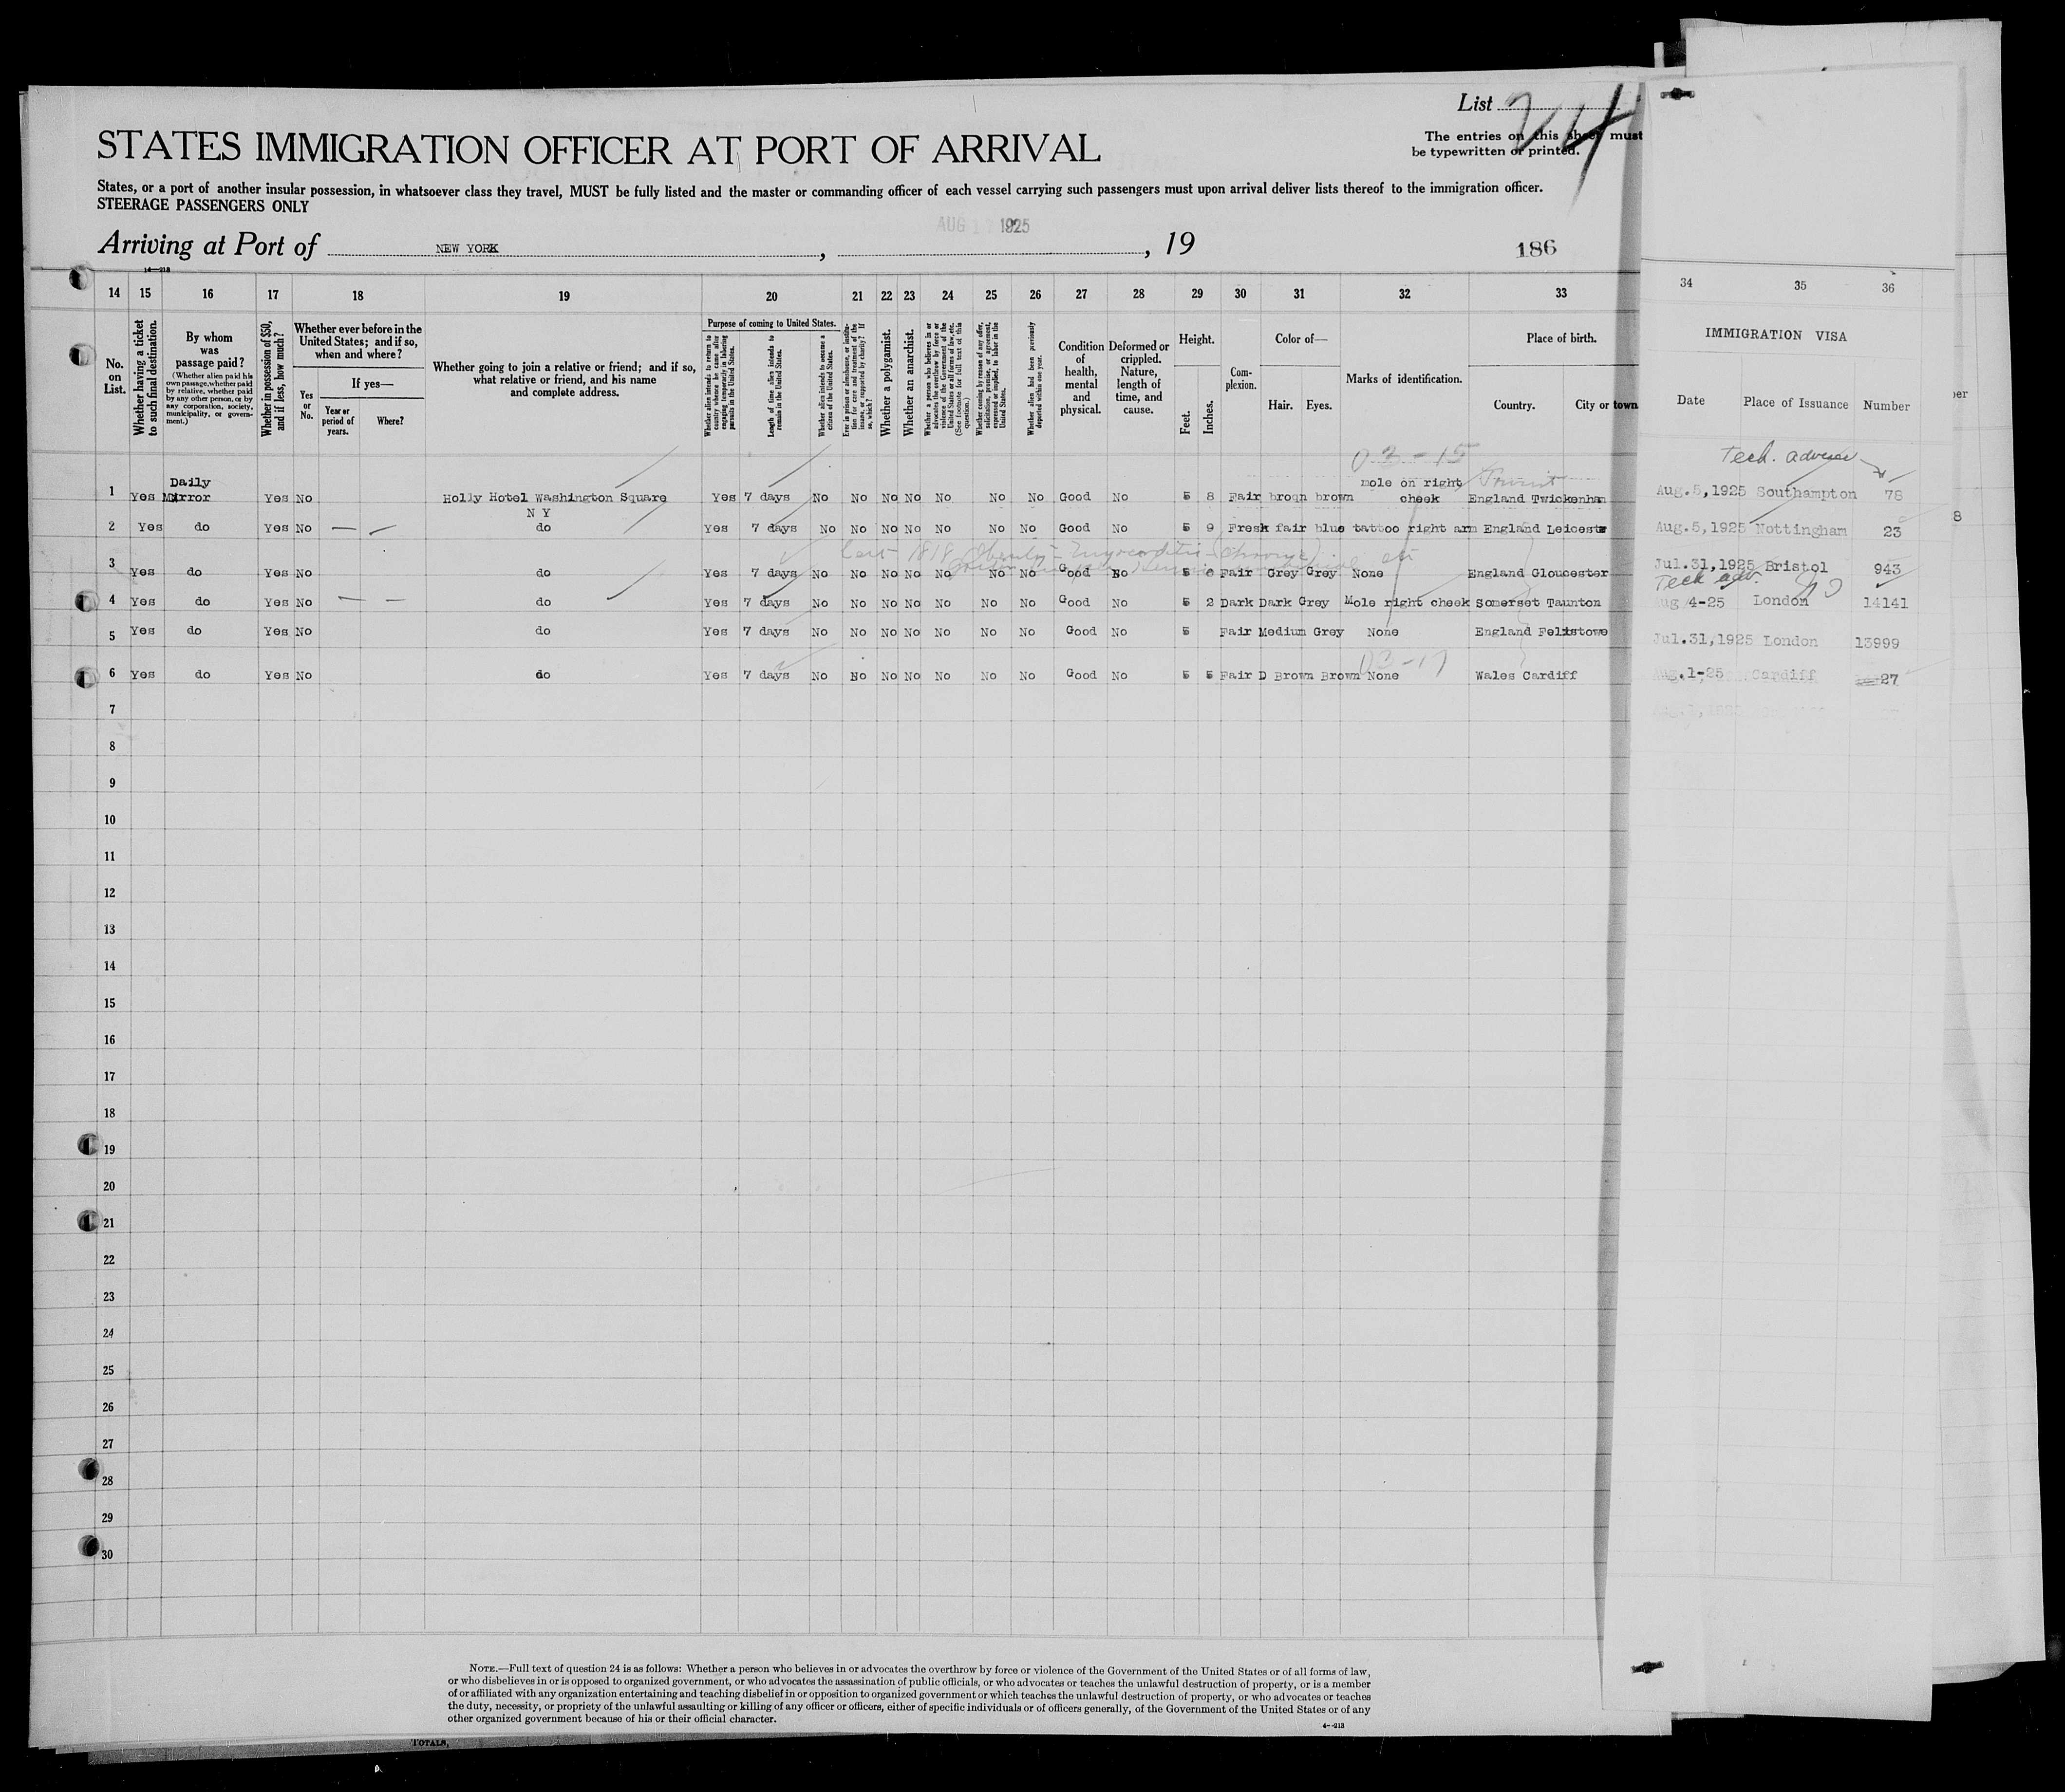 List 24
The entries on this sheet must
be typewritten or printed.
STATES IMMIGRATION OFFICER AT PORT OF ARRIVAL
States, or a port of another insular possession, in whatsoever class they travel, MUST be fully listed and the master or commanding officer of each vessel carrying such passengers must upon arrival deliver lists thereof to the immigration officer.
STEERAGE PASSENGERS ONLY
AUG 1925
Arriving at Port of NEW YORK , , 19
186
14—213
14 15 16 17 18 19 20 21 22 23 24 25 26 27 28 29 30 31 32 33 34 35 36
No. on List.
Whether having a ticket to such final destination.
By whom was passage paid?
(Whether alien paid his own passage, whether paid by relative, whether paid by any other person, or by any corporation, society, municipality, or government.)
Whether in possession of $50, and if less, how much?
Whether ever before in the United States; and if so, when and where?
Yes or No.
If yes—
Year or period of years.
Where?
Whether going to join a relative or friend; and if so, what relative or friend, and his name and complete address.
Purpose of coming to United States.
Whether alien intends to return to country whence he came after engaging temporarily in laboring pursuits in the United States.
Length of time alien intends to remain in the United States.
Whether alien intends to become a citizen of the United States.
Ever in prison or almshouse, or institution for care and treatment of the insane, or supported by charity? If so, which?
Whether a polygamist.
Whether an anarchist.
Whether a person who believes in or advocates the overthrow by force or violence of the Government of the United States or all forms of law, etc. (See footnote for full text of this question.)
Whether coming by reason of any offer, solicitation, promise, or agreement, expressed or implied, to labor in the United States.
Whether alien had been previously deported within one year.
Condition of health, mental and physical.
Deformed or crippled. Nature, length of time, and cause.
Height.
Feet. Inches.
Complexion.
Color of—
Hair. Eyes.
Marks of identification.
Place of birth.
Country. City or town
IMMIGRATION VISA
Date Place of Issuance Number
03-15
Tech. adviser
1 Yes Daily Mirror Yes No Holly Hotel Washington Square N Y Yes 7 days No No No No No No No Good No 5 8 Fair broqn brown mole on right cheek England Twickenham Aug.5,1925 Southampton 78
2 Yes do Yes No — — do Yes 7 days No No No No No No No Good No 5 9 Fresh fair blue tattoo right arm England Leiceste Aug.5,1925 Nottingham 23
3 Yes do Yes No do Yes 7 days No No No No No No No Good No 5 8 Fair Grey Grey None England Gloucester Jul.31,1925 Bristol 943
Tech adv.
4 Yes do Yes No — — do Yes 7 days No No No No No No No Good No 5 2 Dark Dark Grey Mole right cheek Somerset Taunton Aug 4-25 London 14141
5 Yes do Yes No do Yes 7 days No No No No No No No Good No 5 Fair Medium Grey None England Felistowe Jul.31,1925 London 13999
6 Yes do Yes No do Yes 7 days No No No No No No No Good No 5 5 Fair D Brown Brown None Wales Cardiff Aug.1-25 Cardiff 27
7
8
9
10
11
12
13
14
15
16
17
18
19
20
21
22
23
24
25
26
27
28
29
30
NOTE.—Full text of question 24 is as follows: Whether a person who believes in or advocates the overthrow by force or violence of the Government of the United States or of all forms of law,
or who disbelieves in or is opposed to organized government, or who advocates the assassination of public officials, or who advocates or teaches the unlawful destruction of property, or is a member
of or affiliated with any organization entertaining and teaching disbelief in or opposition to organized government or which teaches the unlawful destruction of property, or who advocates or teaches
the duty, necessity, or propriety of the unlawful assaulting or killing of any officer or officers, either of specific individuals or of officers generally, of the Government of the United States or of any
other organized government because of his or their official character.
4—213
TOTALS,